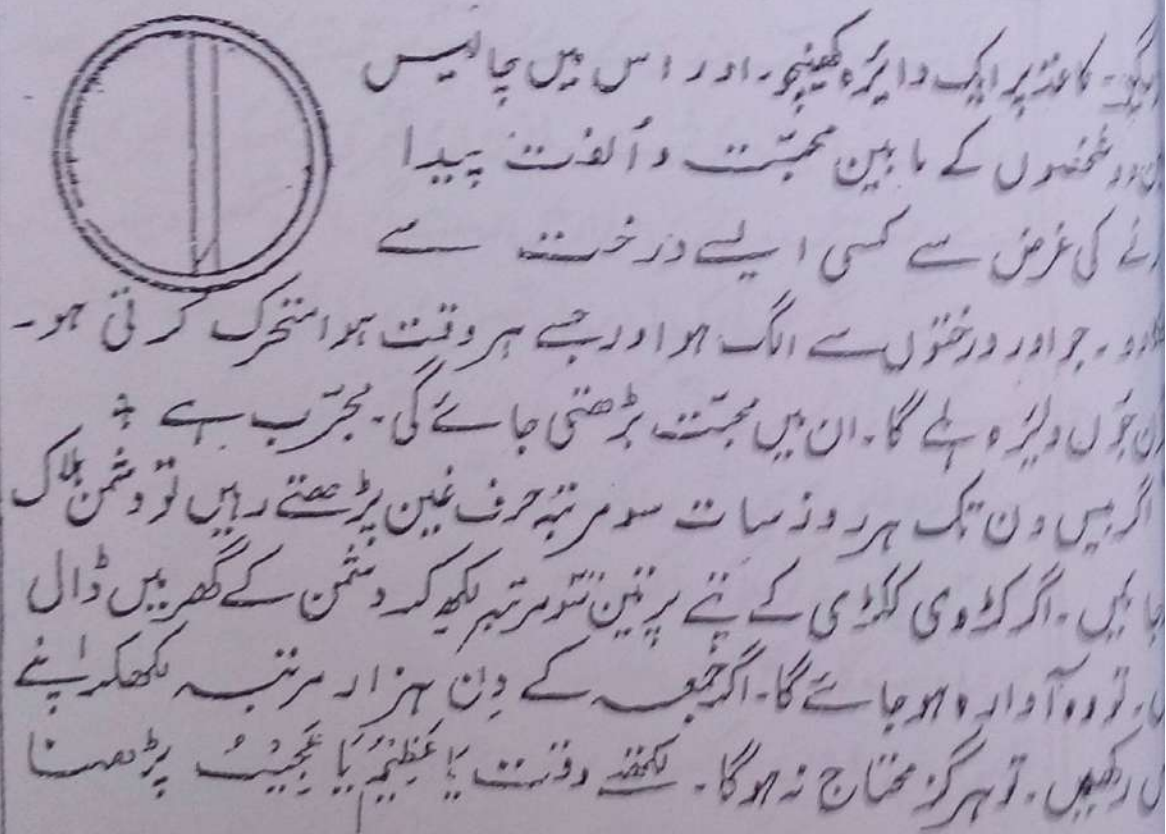 کاغذ پر ایک دائرہ کھینچو۔ اور اس میں چالیس
دو شخصوں کے مابین محبّت و اُلفت پیدا
نے کی غرض سے کسی ایسے درخت سے
دو۔ جو اور درختوں سے الگ ہو اور جسے ہر وقت ہوا متحرک کرتی ہو۔
جوں وہ ہلے گا۔ ان میں محبّت بڑھتی جائے گی۔ مجرّب ہے
اگر بیس دن تک ہر روز سات سو مرتبہ حرف غین پڑھتے رہیں تو دشمن ہلاک
جائیں۔ اگر کڑوی ککڑی کے پتے پر تین سَو مرتبہ لکھ کر دشمن کے گھر میں ڈال
تو وہ آوارہ ہو جائے گا۔ اگر جمعہ کے دِن ہزار مرتبہ لکھکر اپنے
رکھیں۔ تو ہرگز محتاج نہ ہوگا۔ لکھتے وقت یَا عَظِیْمُ یَا پڑھنا